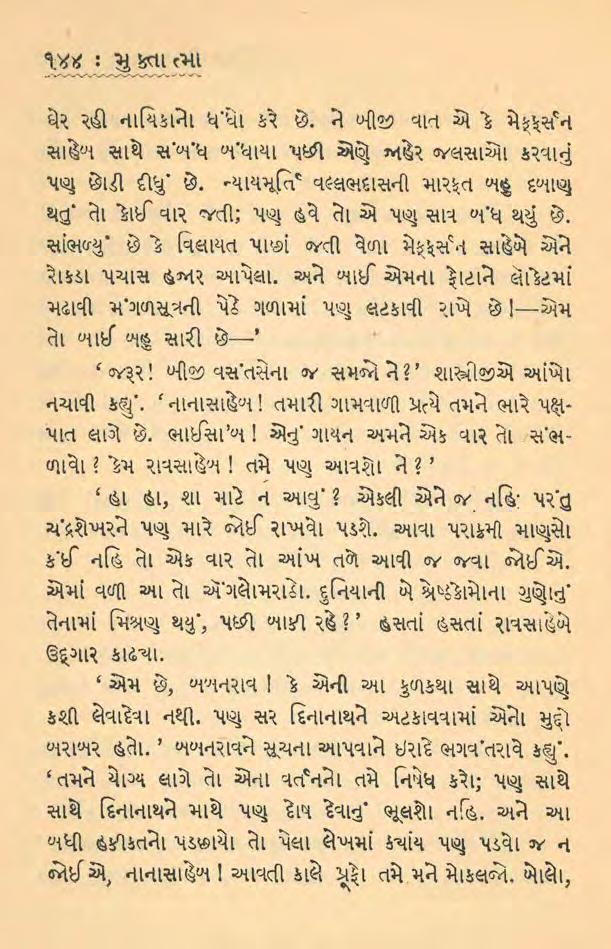 ૧૪૪ : મુક્તાત્મા
ઘેર રહી નાયિકાનો ધંધો કરે છે. ને બીજી વાત એ કે મેકફર્સન
સાહેબ સાથે સંબંધ બંધાયા પછી એણે જાહેર જલસાઓ કરવાનું
પણ છોડી દીધું છે. ન્યાયમૂર્તિ વલ્લભદાસની મારફત બહુ દબાણ
થતું તો કોઈ વાર જતી; પણ હવે તો એ પણ સાવ બંધ થયું છે.
સાંભળ્યું છે કે વિલાયત પાછાં જતી વેળા મેકફર્સન સાહેબે એને
રોકડા પચાસ હજાર આપેલા. અને બાઈ એમના ફોટાને લૉકેટમાં
મઢાવી મંગળસૂત્રની પેઠે ગળામાં પણ લટકાવી રાખે છે !—એમ
તો બાઈ બહુ સારી છે—’
‘ જરૂર! બીજી વસંતસેના જ સમજો ને?’ શાસ્ત્રીજીએ આંખો
નચાવી કહ્યું. ‘નાનાસાહેબ! તમારી ગામવાળી પ્રત્યે તમને ભારે પક્ષ-
પાત લાગે છે. ભાઈસા’બ ! એનું ગાયન અમને એક વાર તો સંભ-
ળાવો ? કેમ રાવસાહેબ ! તમે પણ આવશો ને ? ’
‘ હા હા, શા માટે ન આવું ? એકલી એને જ નહિ પરંતુ
ચંદ્રશેખરને પણ મારે જોઈ રાખવો પડશે. આવા પરાક્રમી માણસો
કંઈ નહિ તો એક વાર તો આંખ તળે આવી જ જવા જોઈએ.
એમાં વળી આ તો અૅંગલોમરાઠો. દુનિયાની બે શ્રેષ્ઠકોમોના ગુણોનું
તેનામાં મિશ્રણ થયું, પછી બાકી રહે?’ હસતાં હસતાં રાવસાહેબે
ઉદ્દગાર કાઢ્યા.
‘ એમ છે, બબનરાવ ! કે એની આ કુળકથા સાથે આપણે
કશી લેવાદેવા નથી. પણ સર દિનાનાથને અટકાવવામાં એનો મુદ્દો
બરાબર હતો. ’ બબનરાવને સૂચના આપવાને ઇરાદે ભગવંતરાવે કહ્યું.
‘તમને યોગ્ય લાગે તો એના વર્તનનો તમે નિષેધ કરો; પણ સાથે
સાથે દિનાનાથને માથે પણ દોષ દેવાનું ભૂલશો નહિ. અને આ
બધી હકીકતનો પડછાયો તો પેલા લેખમાં કયાંય પણ પડવો જ ન
જોઈ એ, નાનાસાહેબ ! આવતી કાલે પ્રૂફો તમે મને મોકલજો. બોલો,